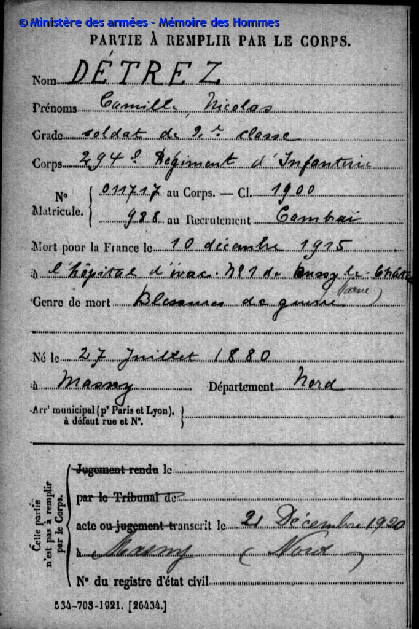 © Ministère des armées - Mémoire des Hommes
PARTIE À REMPLIR PAR LE CORPS.
Nom DÉTREZ
Prénoms Camille, Nicolas
Grade soldat de 2e classe
Corps 294e Régiment d'Infanterie
N° Matricule. 011717 au Corps. — Cl. 1900
988 au Recrutement Cambrai
Mort pour la France le 10 décembre 1915
à l'hôpital d'évac. N°1 de Bussy le Château
(Marne)
Genre de mort Blessures de guerre
Né le 27 Juillet 1880
à Masny Département Nord
Arrt municipal (pr Paris et Lyon),
à défaut rue et N°.
Cette partie n'est pas à remplir par le Corps.
Jugement rendu le
par le Tribunal de
acte ou jugement transcrit le 21 Décembre 1920
à Masny (Nord)
N° du registre d'état civil
534-703-1921. [26434.]